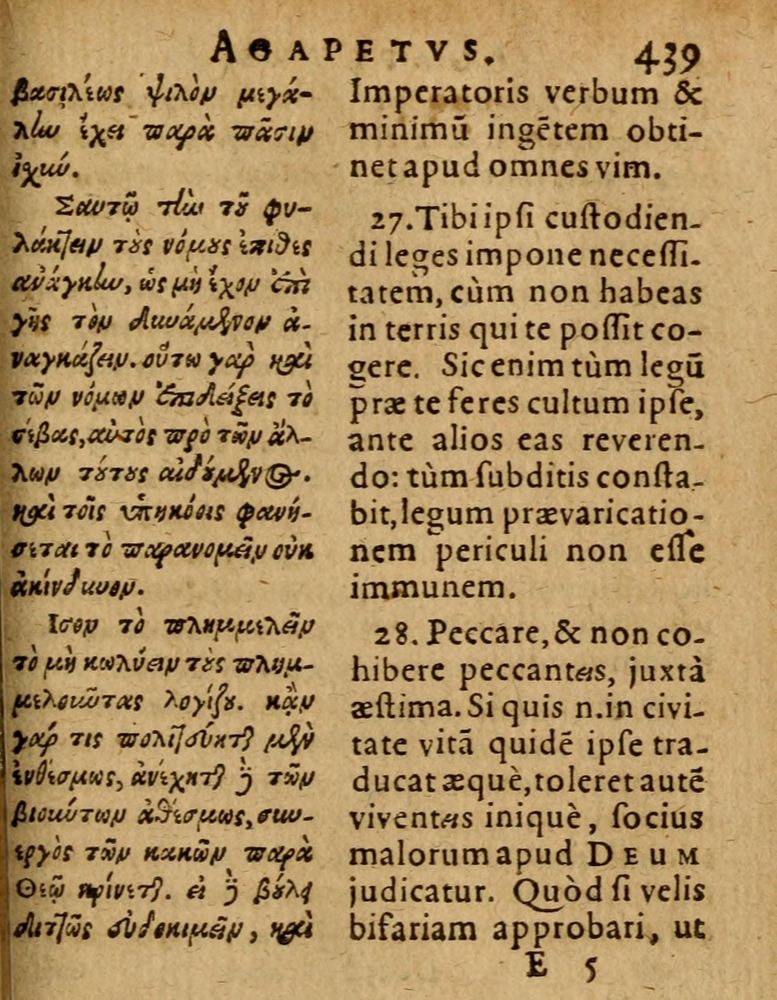 ΑΘΑPETVS. 439
βασιλέως ψιλὸν μεγά-
λην ἔχει παρὰ πᾶσιν
ἰχύν.
Σαυτῷ τὴν τοῦ φυ-
λάττειν τοὺς νόμους ἐπιθὲς
ἀνάγκην, ὡς μὴ ἔχον ἐπὶ
γῆς τὸν δυνάμενον ἀ-
ναγκάζειν. οὕτω γὰρ καὶ
τῶν νόμων ἐπιδείξεις τὸ
σέβας, αὐτὸς πρὸ τῶν ἄλ-
λων τούτους αἰδούμενος.
καὶ τοῖς ὑπηκόοις φανή-
σεται τὸ παρανομεῖν οὐκ
ἀκίνδυνον.
Ισον τὸ πλημμελεῖν
τὸ μὴ κωλύειν τοὺς πλημ-
μελοῦντας λογίζου. κἄν
γάρ τις πολιτεύηται μὲν
ἐνθέσμως, ἀνέχηται δὲ τῶν
βιούντων ἀθέσμως, συν-
εργὸς τῶν κακῶν παρὰ
Θεῷ κρίνεται. εἰ δὲ βούλει
διττῶς εὐδοκιμεῖν, καὶ
Imperatoris verbum &
minimū ingētem obti-
net apud omnes vim.
27. Tibi ipſi cuſtodien-
di leges impone neceſſi-
tatem, cùm non habeas
in terris qui te poſſit co-
gere. Sic enim tùm legū
præ te feres cultum ipſe,
ante alios eas reveren-
do: tùm ſubditis conſta-
bit, legum prævaricatio-
nem periculi non eſſe
immunem.
28. Peccare, & non co-
hibere peccantes, juxtà
æſtima. Si quis n. in civi-
tate vitā quidē ipſe tra-
ducat æquè, toleret autē
viventes iniquè, ſocius
malorum apud DEUM
judicatur. Quòd ſi velis
bifariam approbari, ut
E 5